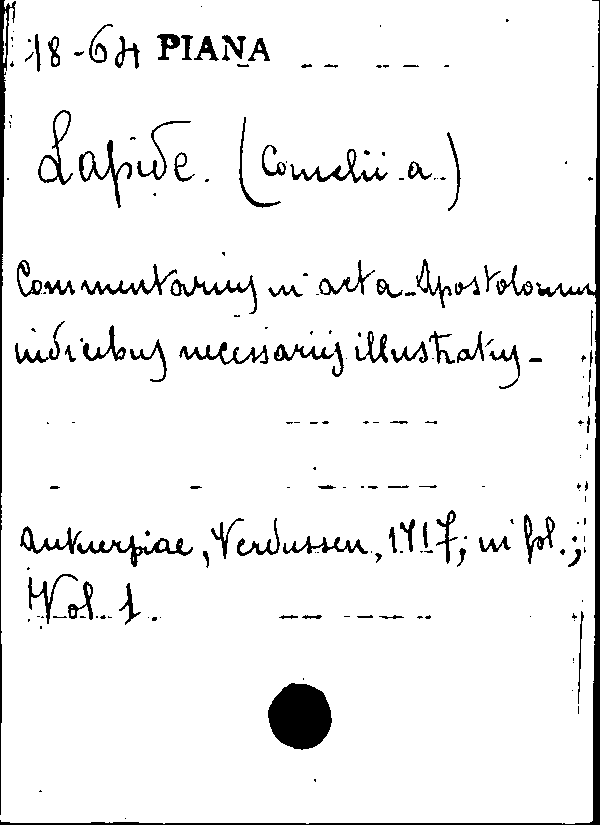 18-64 PIANA
Lapide. (Cornelii a.)
Commentarius in acta Apostolorum
indicibus necessariis illustratus -
Antuerpiae, Verdussen, 1717; in fol.;
Vol. 1.